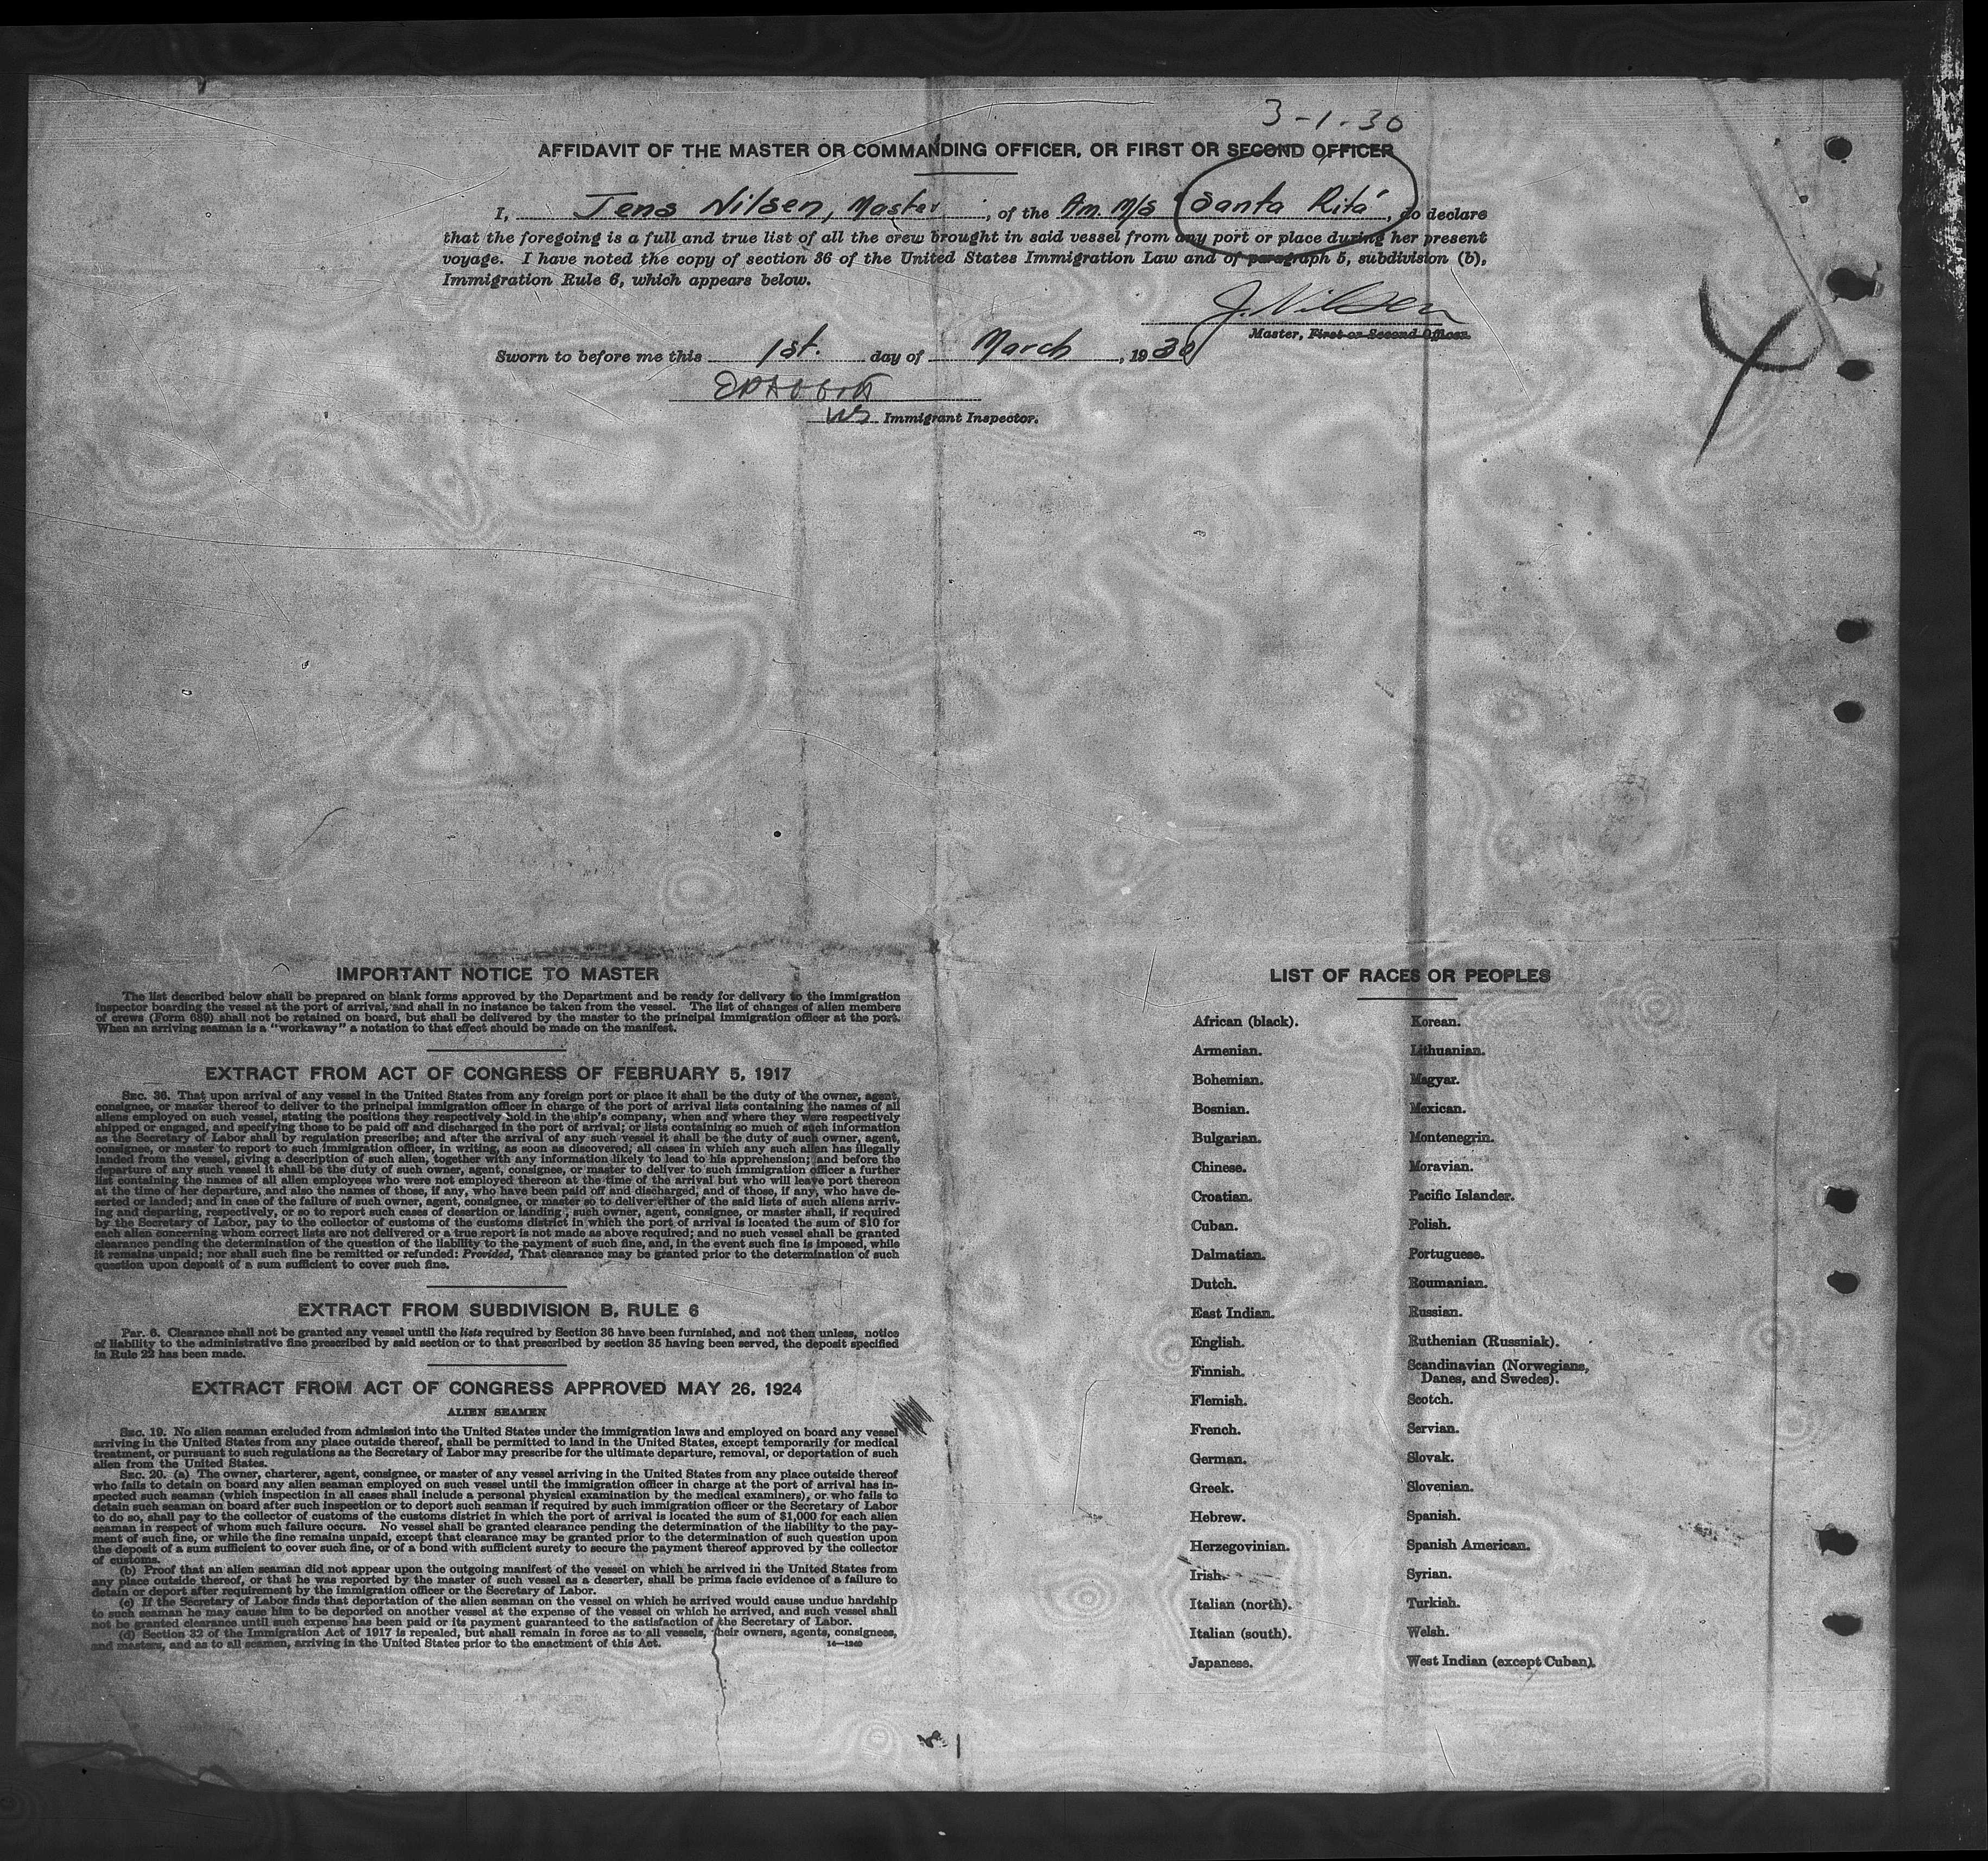 3-1-30
AFFIDAVIT OF THE MASTER OR COMMANDING OFFICER, OR FIRST OR SECOND OFFICER
I, Jens Nilsen, Master, of the Am. M/S "Santa Rita", do declare
that the foregoing is a full and true list of all the crew brought in said vessel from any port or place during her present
voyage. I have noted the copy of section 36 of the United States Immigration Law and of paragraph 5, subdivision (b),
Immigration Rule 6, which appears below.
J. Nilsen
Master, First or Second Officer.
Sworn to before me this 1st. day of March, 1930
Immigrant Inspector.
IMPORTANT NOTICE TO MASTER
The list described below shall be prepared on blank forms approved by the Department and be ready for delivery to the immigration
inspector boarding the vessel at the port of arrival, and shall in no instance be taken from the vessel. The list of changes of alien members
of crews (Form 689) shall not be retained on board, but shall be delivered by the master to the principal immigration officer at the port.
When an arriving seaman is a "workaway" a notation to that effect should be made on the manifest.
EXTRACT FROM ACT OF CONGRESS OF FEBRUARY 5, 1917
SEC. 36. That upon arrival of any vessel in the United States from any foreign port or place it shall be the duty of the owner, agent,
consignee, or master thereof to deliver to the principal immigration officer in charge of the port of arrival lists containing the names of all
aliens employed on such vessel, stating the positions they respectively hold in the ship's company, when and where they were respectively
shipped or engaged, and specifying those to be paid off and discharged in the port of arrival; or lists containing so much of such information
as the Secretary of Labor shall by regulation prescribe; and after the arrival of any such vessel it shall be the duty of such owner, agent,
consignee, or master to report to such immigration officer, in writing, as soon as discovered, all cases in which any such alien has illegally
landed from the vessel, giving a description of such alien, together with any information likely to lead to his apprehension; and before the
departure of any such vessel it shall be the duty of such owner, agent, consignee, or master to deliver to such immigration officer a further
list containing the names of all alien employees who were not employed thereon at the time of the arrival but who will leave port thereon
at the time of her departure, and also the names of those, if any, who have been paid off and discharged, and of those, if any, who have de-
serted or landed; and in case of the failure of such owner, agent, consignee, or master so to deliver either of the said lists of such aliens arriv-
ing and departing, respectively, or so to report such cases of desertion or landing, such owner, agent, consignee, or master shall, if required
by the Secretary of Labor, pay to the collector of customs of the customs district in which the port of arrival is located the sum of $10 for
each alien concerning whom correct lists are not delivered or a true report is not made as above required; and no such vessel shall be granted
clearance pending the determination of the question of the liability to the payment of such fine, and, in the event such fine is imposed, while
it remains unpaid; nor shall such fine be remitted or refunded: Provided, That clearance may be granted prior to the determination of such
question upon deposit of a sum sufficient to cover such fine.
EXTRACT FROM SUBDIVISION B, RULE 6
Par. 6. Clearance shall not be granted any vessel until the lists required by Section 36 have been furnished, and not then unless, notice
of liability to the administrative fine prescribed by said section or to that prescribed by section 35 having been served, the deposit specified
in Rule 22 has been made.
EXTRACT FROM ACT OF CONGRESS APPROVED MAY 26, 1924
ALIEN SEAMEN
SEC. 19. No alien seaman excluded from admission into the United States under the immigration laws and employed on board any vessel
arriving in the United States from any place outside thereof, shall be permitted to land in the United States, except temporarily for medical
treatment, or pursuant to such regulations as the Secretary of Labor may prescribe for the ultimate departure, removal, or deportation of such
alien from the United States.
SEC. 20. (a) The owner, charterer, agent, consignee, or master of any vessel arriving in the United States from any place outside thereof
who fails to detain on board any alien seaman employed on such vessel until the immigration officer in charge at the port of arrival has in-
spected such seaman (which inspection in all cases shall include a personal physical examination by the medical examiners), or who fails to
detain such seaman on board after such inspection or to deport such seaman if required by such immigration officer or the Secretary of Labor
to do so, shall pay to the collector of customs of the customs district in which the port of arrival is located the sum of $1,000 for each alien
seaman in respect of whom such failure occurs. No vessel shall be granted clearance pending the determination of the liability to the pay-
ment of such fine, or while the fine remains unpaid, except that clearance may be granted prior to the determination of such question upon
the deposit of a sum sufficient to cover such fine, or of a bond with sufficient surety to secure the payment thereof approved by the collector
of customs.
(b) Proof that an alien seaman did not appear upon the outgoing manifest of the vessel on which he arrived in the United States from
any place outside thereof, or that he was reported by the master of such vessel as a deserter, shall be prima facie evidence of a failure to
detain or deport after requirement by the immigration officer or the Secretary of Labor.
(c) If the Secretary of Labor finds that deportation of the alien seaman on the vessel on which he arrived would cause undue hardship
to such seaman he may cause him to be deported on another vessel at the expense of the vessel on which he arrived, and such vessel shall
not be granted clearance until such expense has been paid or its payment guaranteed to the satisfaction of the Secretary of Labor.
(d) Section 32 of the Immigration Act of 1917 is repealed, but shall remain in force as to all vessels, their owners, agents, consignees,
and masters, and as to all seamen, arriving in the United States prior to the enactment of this Act.
14—1240
LIST OF RACES OR PEOPLES
African (black).
Armenian.
Bohemian.
Bosnian.
Bulgarian.
Chinese.
Croatian.
Cuban.
Dalmatian.
Dutch.
East Indian.
English.
Finnish.
Flemish.
French.
German.
Greek.
Hebrew.
Herzegovinian.
Irish.
Italian (north).
Italian (south).
Japanese.
Korean.
Lithuanian.
Magyar.
Mexican.
Montenegrin.
Moravian.
Pacific Islander.
Polish.
Portuguese.
Roumanian.
Russian.
Ruthenian (Russniak).
Scandinavian (Norwegians,
Danes, and Swedes).
Scotch.
Servian.
Slovak.
Slovenian.
Spanish.
Spanish American.
Syrian.
Turkish.
Welsh.
West Indian (except Cuban).